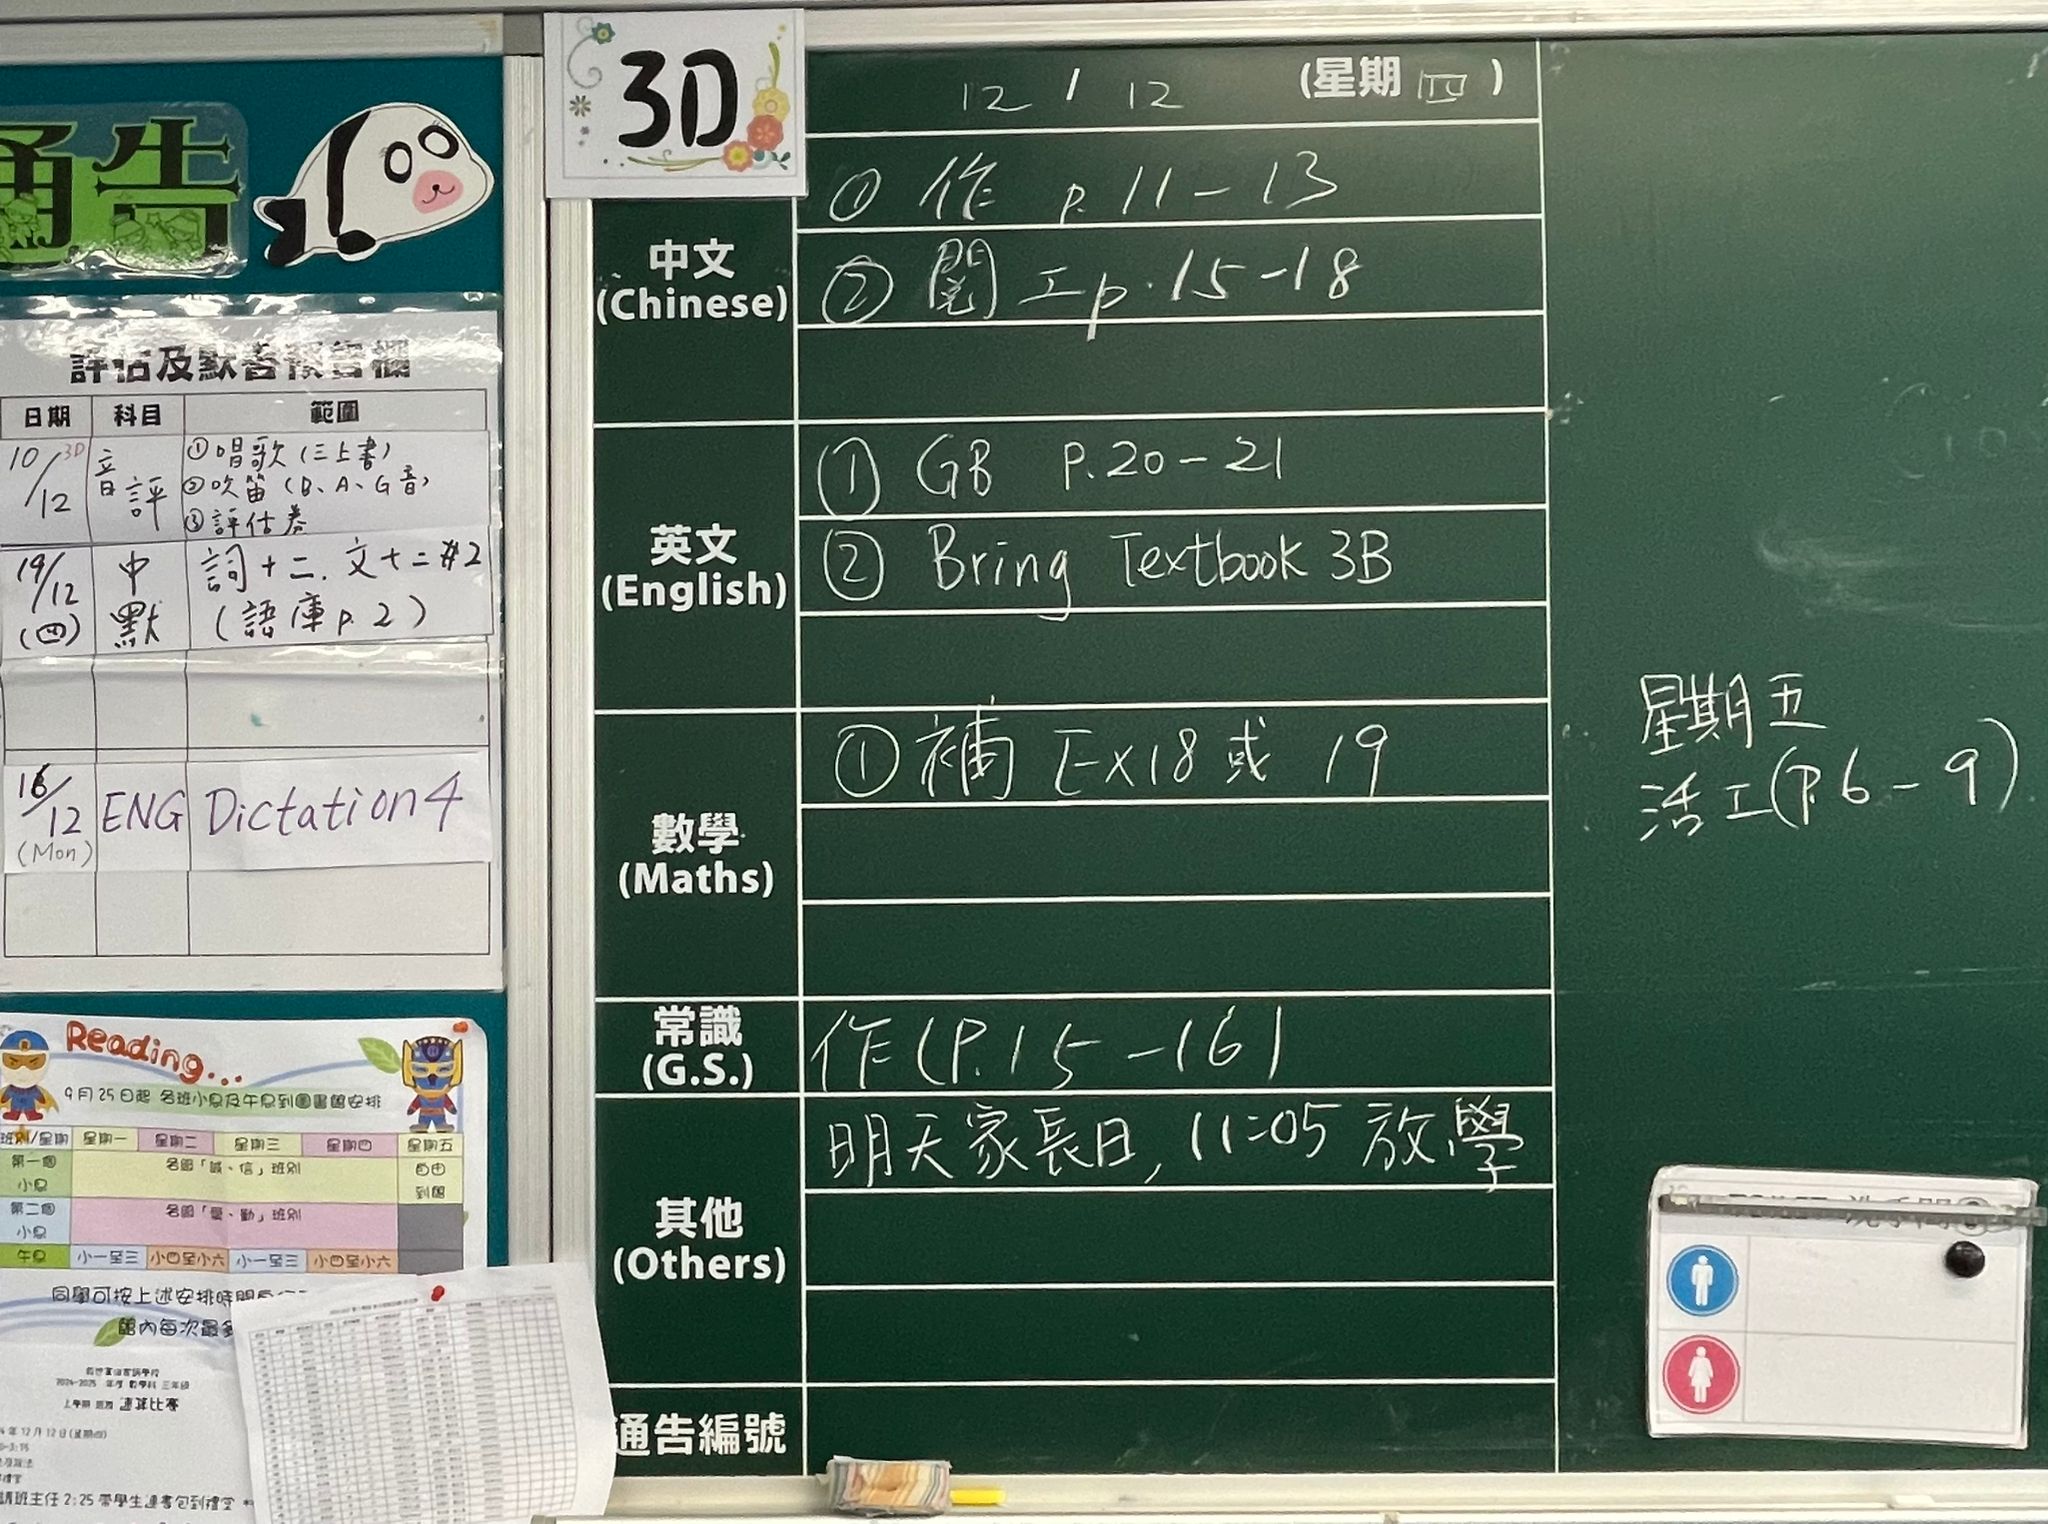 通告
評估及默書預告欄
日期 科目 範圍
10/12 3D 音評 ①唱歌(三上書)
②吹笛(B、A、G音)
③評估卷
19/12 (四) 中默 詞十二. 文十二 #2
(語庫 p.2)
16/12 (Mon) ENG Dictation 4
Reading...
9月25日起 各班小息及午息到圖書館安排
班別/星期 星期一 星期二 星期三 星期四 星期五
第一個小息 各級「誠、信」班別 自由到館
第二個小息 各級「愛、勤」班別
午息 小一至三 小四至小六 小一至三 小四至小六
同學可按上述安排時間
館內每次最多
2024-2025 年度 數學科 三年級
上學期 速算比賽
年12月12日(星期四)
請班主任 2:25 帶學生連書包到禮堂
3D
12 / 12 (星期四)
中文
(Chinese)
① 作 p.11-13
② 閱工 p.15-18
英文
(English)
① GB P.20-21
② Bring Textbook 3B
數學
(Maths)
① 補 Ex18 或 19
常識
(G.S.)
作(P.15-16)
其他
(Others)
明天家長日, 11:05 放學
通告編號
星期五
活工(P.6-9)